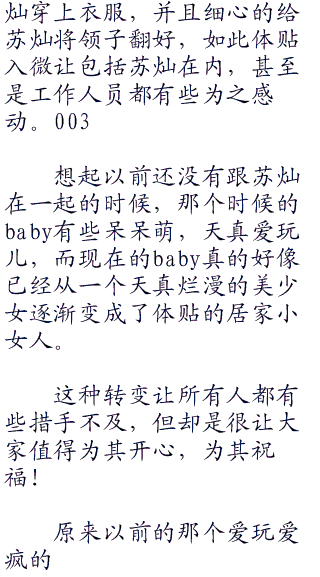 灿穿上衣服，并且细心的给
苏灿将领子翻好，如此体贴
入微让包括苏灿在内，甚至
是工作人员都有些为之感
动。003
想起以前还没有跟苏灿
在一起的时候，那个时候的
baby有些呆呆萌，天真爱玩
儿，而现在的baby真的好像
已经从一个天真烂漫的美少
女逐渐变成了体贴的居家小
女人。
这种转变让所有人都有
些措手不及，但却是很让大
家值得为其开心，为其祝
福！
原来以前的那个爱玩爱
疯的